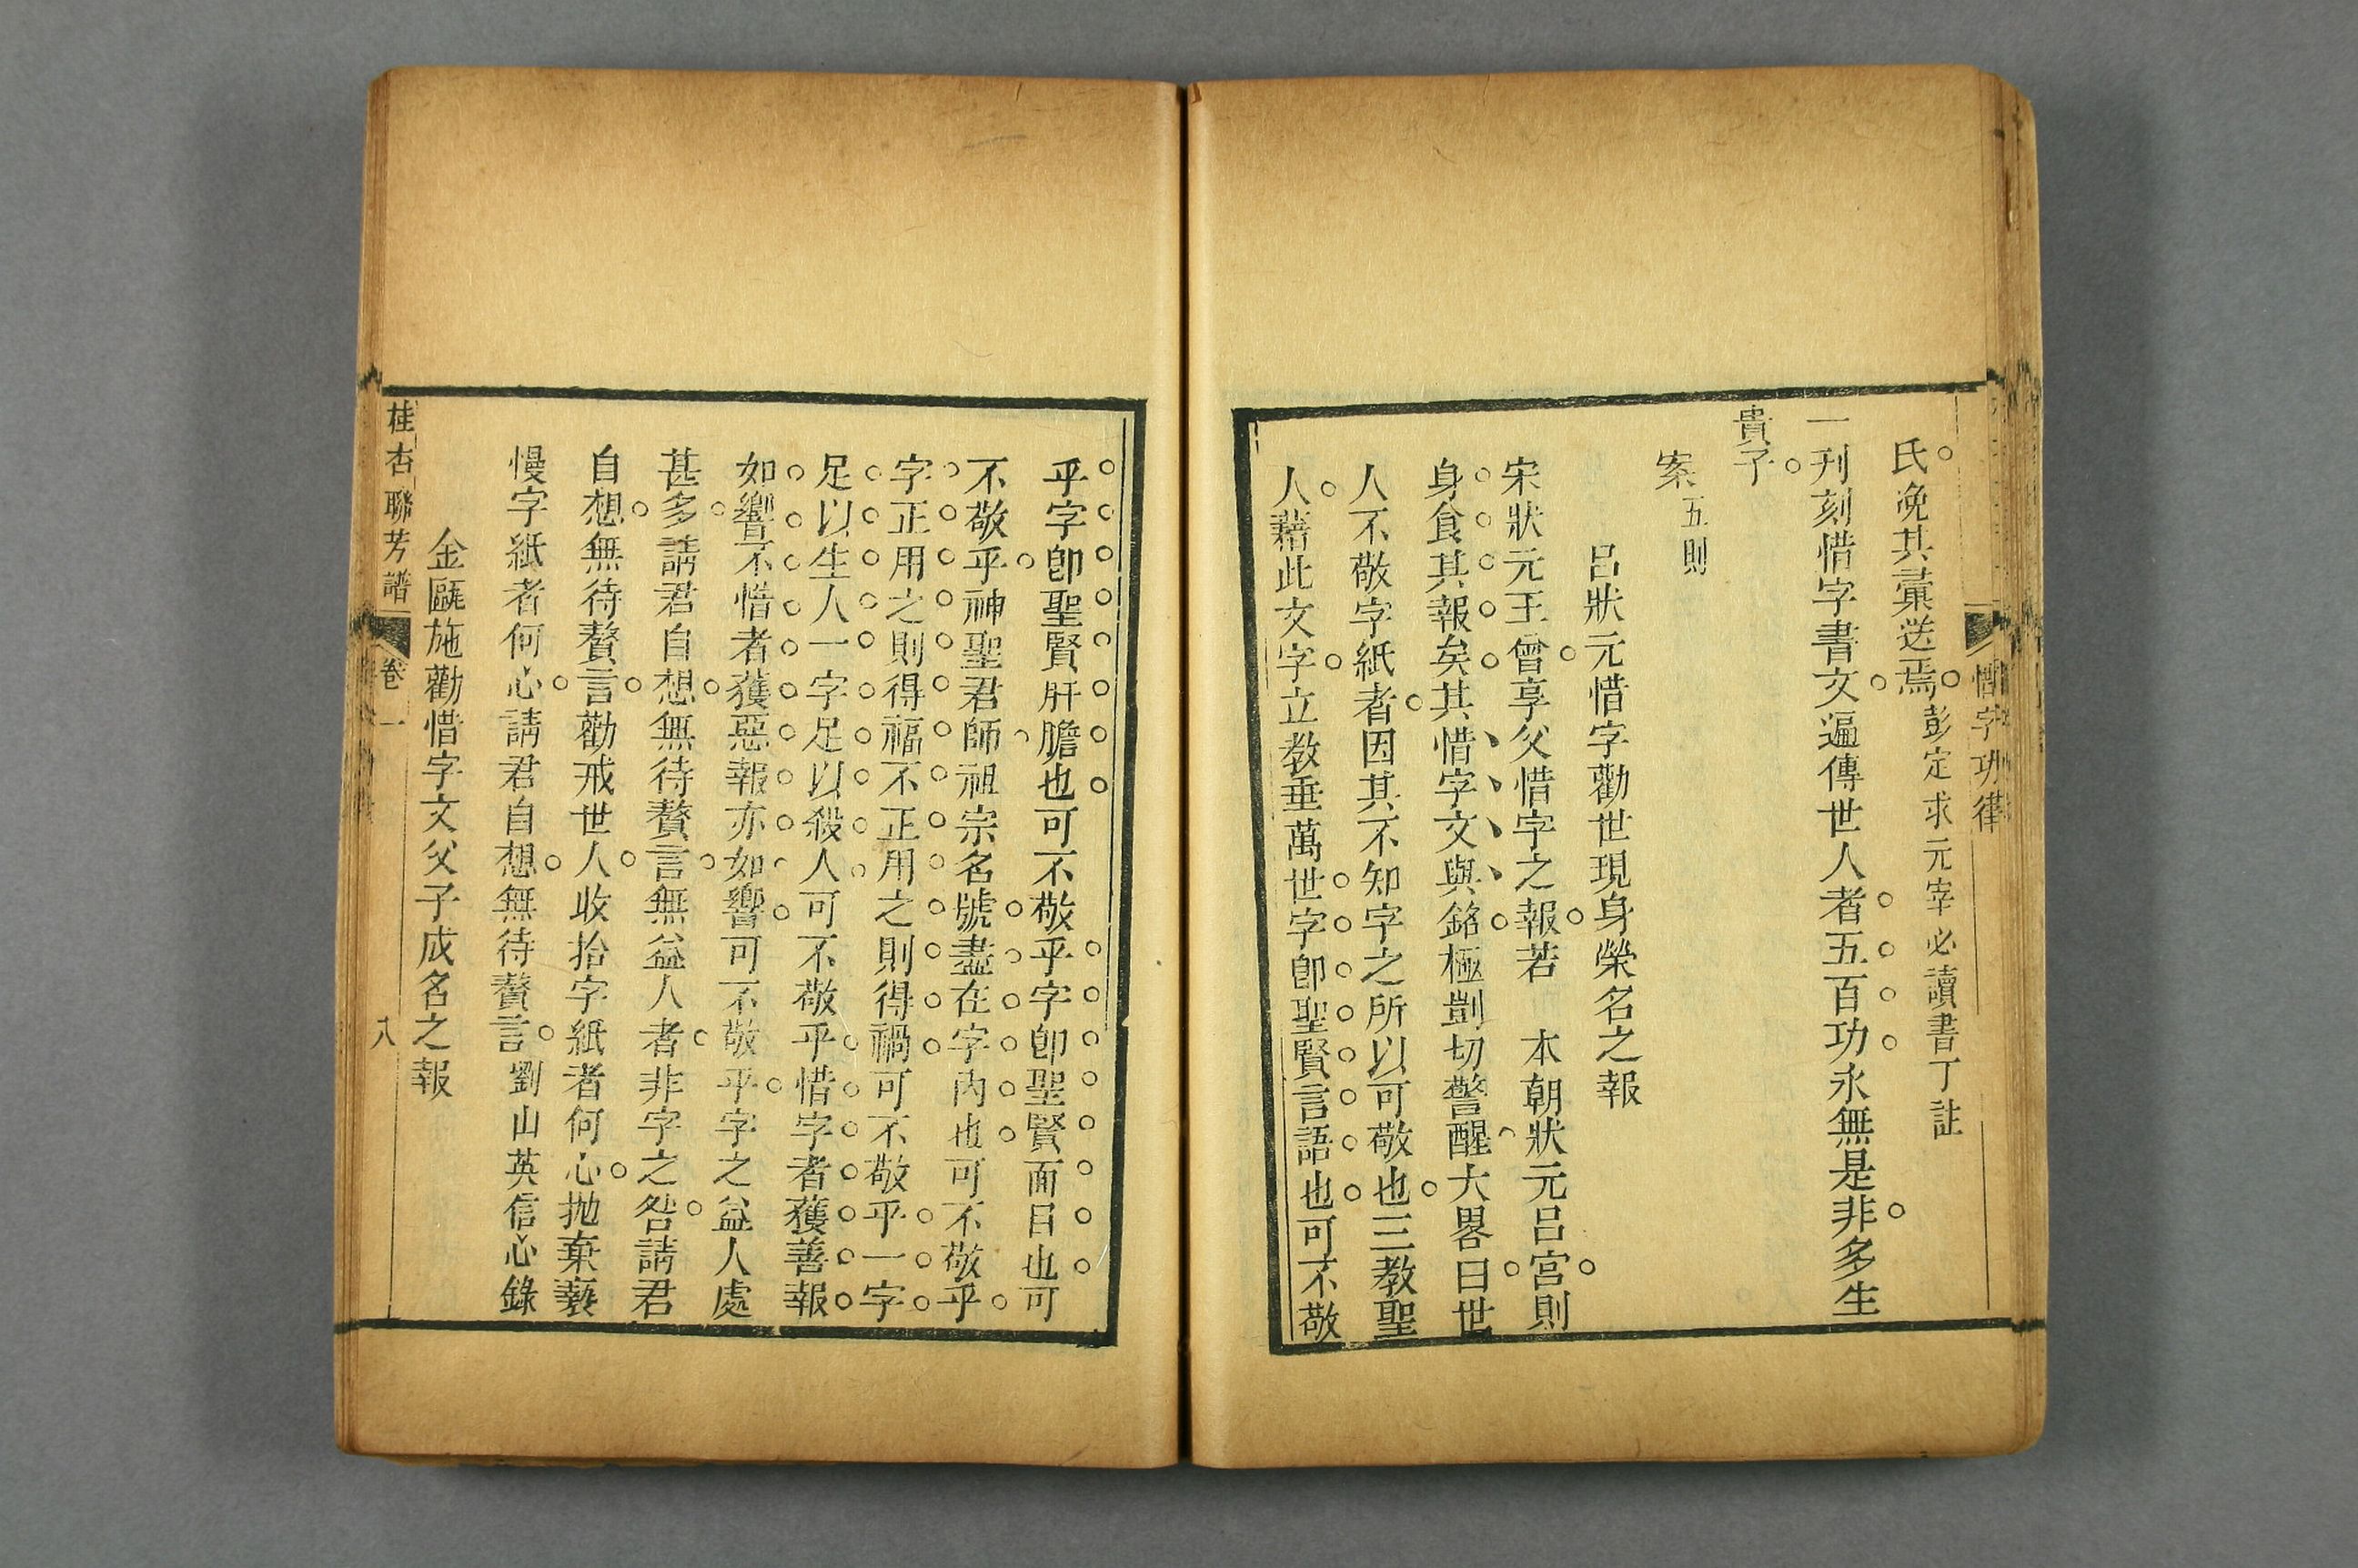 惜字功律
氏。浼其彙送焉。彭定求元宰必讀書丁註
一刋刻惜字書文。遍傳世人者五百功永無是非。多生
貴子。
案五則
呂狀元惜字勸世現身榮名之報
宋狀元王曾。享父惜字之報。若　本朝狀元呂宮。則
身食其報矣。其惜字文與銘。極剴切警醒。大畧曰。世
人不敬字紙者。因其不知字之所以可敬也。三教聖
人。藉此文字。立教垂萬世。字卽聖賢言語也。可不敬
乎字卽聖賢肝膽也可不敬乎字卽聖賢面目也可
不敬乎。神聖君師祖宗名號。盡在字內也可不敬乎。
字正用之則得福不正用之則得禍可不敬乎。一字
足以生人一字足以殺人可不敬乎。惜字者獲善報
如響不惜者獲惡報亦如響可不敬乎。字之益人處
甚多。請君自想。無待贅言。無益人者。非字之咎。請君
自想。無待贅言。勸戒世人。收拾字紙者何心。抛棄褻
慢字紙者何心。請君自想。無待贅言。劉山英信心錄
金甌施勸惜字文父子成名之報
桂杏聯芳譜　卷一　八